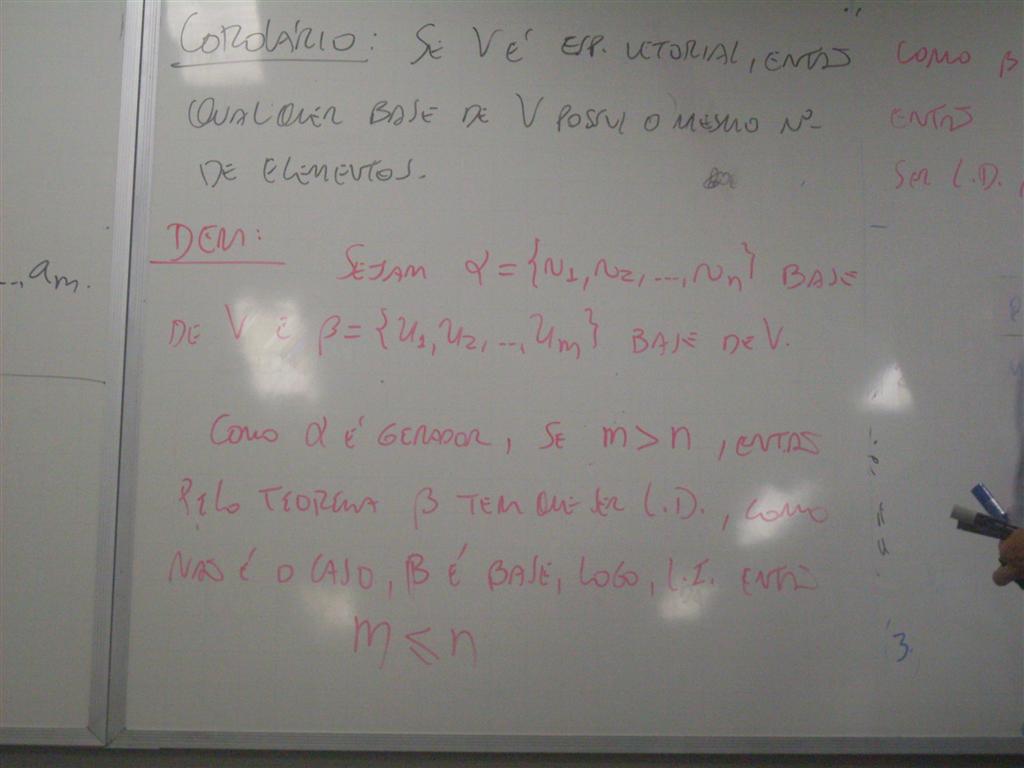 COROLÁRIO: SE V É ESP. VETORIAL, ENTÃO
QUALQUER BASE DE V POSSUI O MESMO Nº
DE ELEMENTOS.
DEM:
SEJAM α = {v1, v2, ..., vn} BASE
DE V E β = {u1, u2, ..., um} BASE DE V.
COMO α É GERADOR, SE m > n, ENTÃO
PELO TEOREMA β TEM QUE SER L.D., COMO
NÃO É O CASO, β É BASE, LOGO, L.I. ENTÃO
m ≤ n
..., am.
COMO β
ENTÃO
SER L.D.,
3